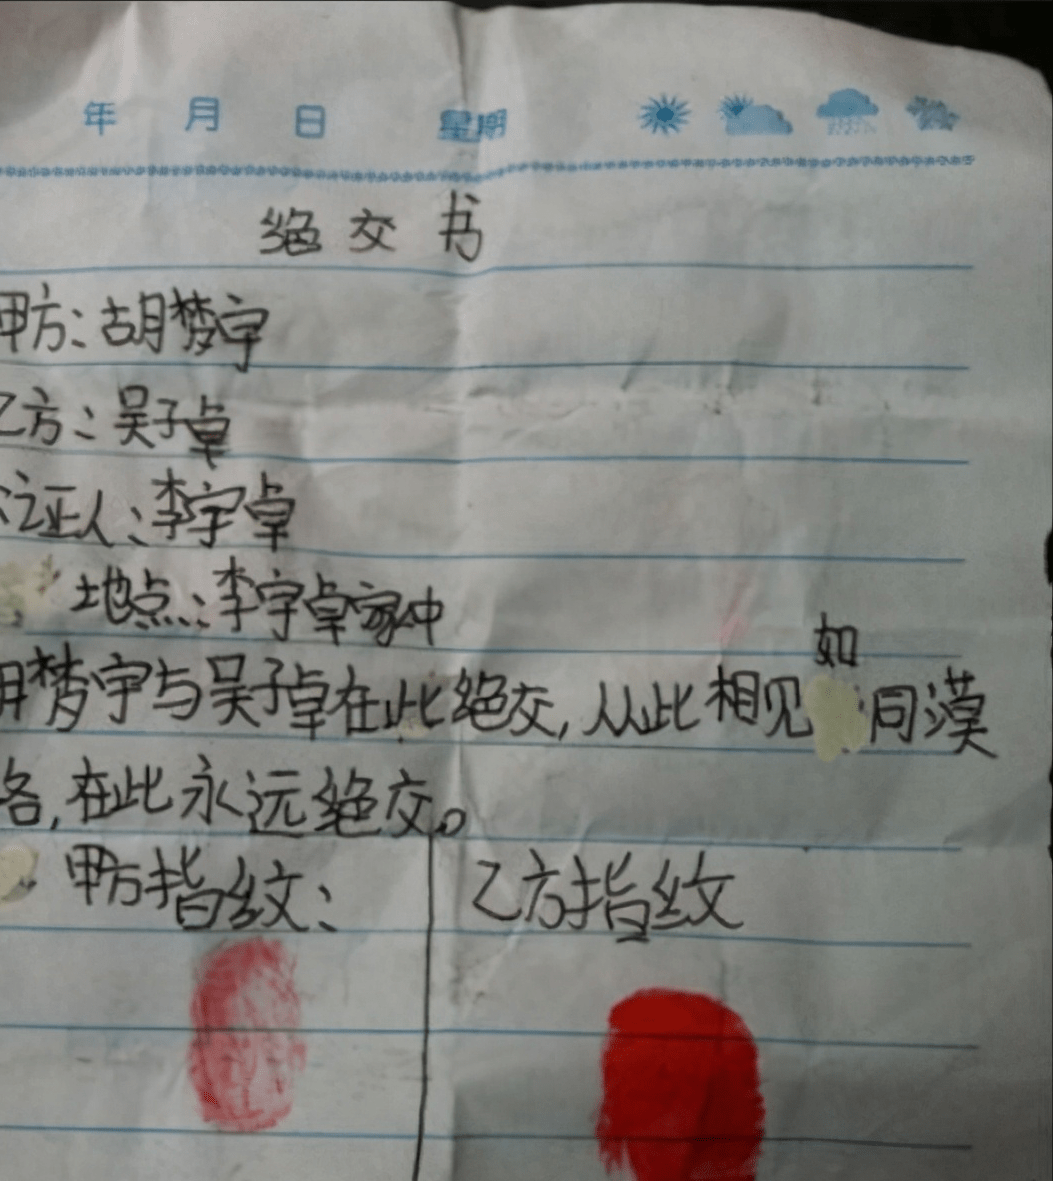 年 月 日 星期
绝交书
甲方:胡梦宇
乙方:吴子卓
证人:李宇卓
地点:李宇卓家中
胡梦宇与吴子卓在此绝交,从此相见如同漠
各,在此永远绝交。
甲方指纹: 乙方指纹